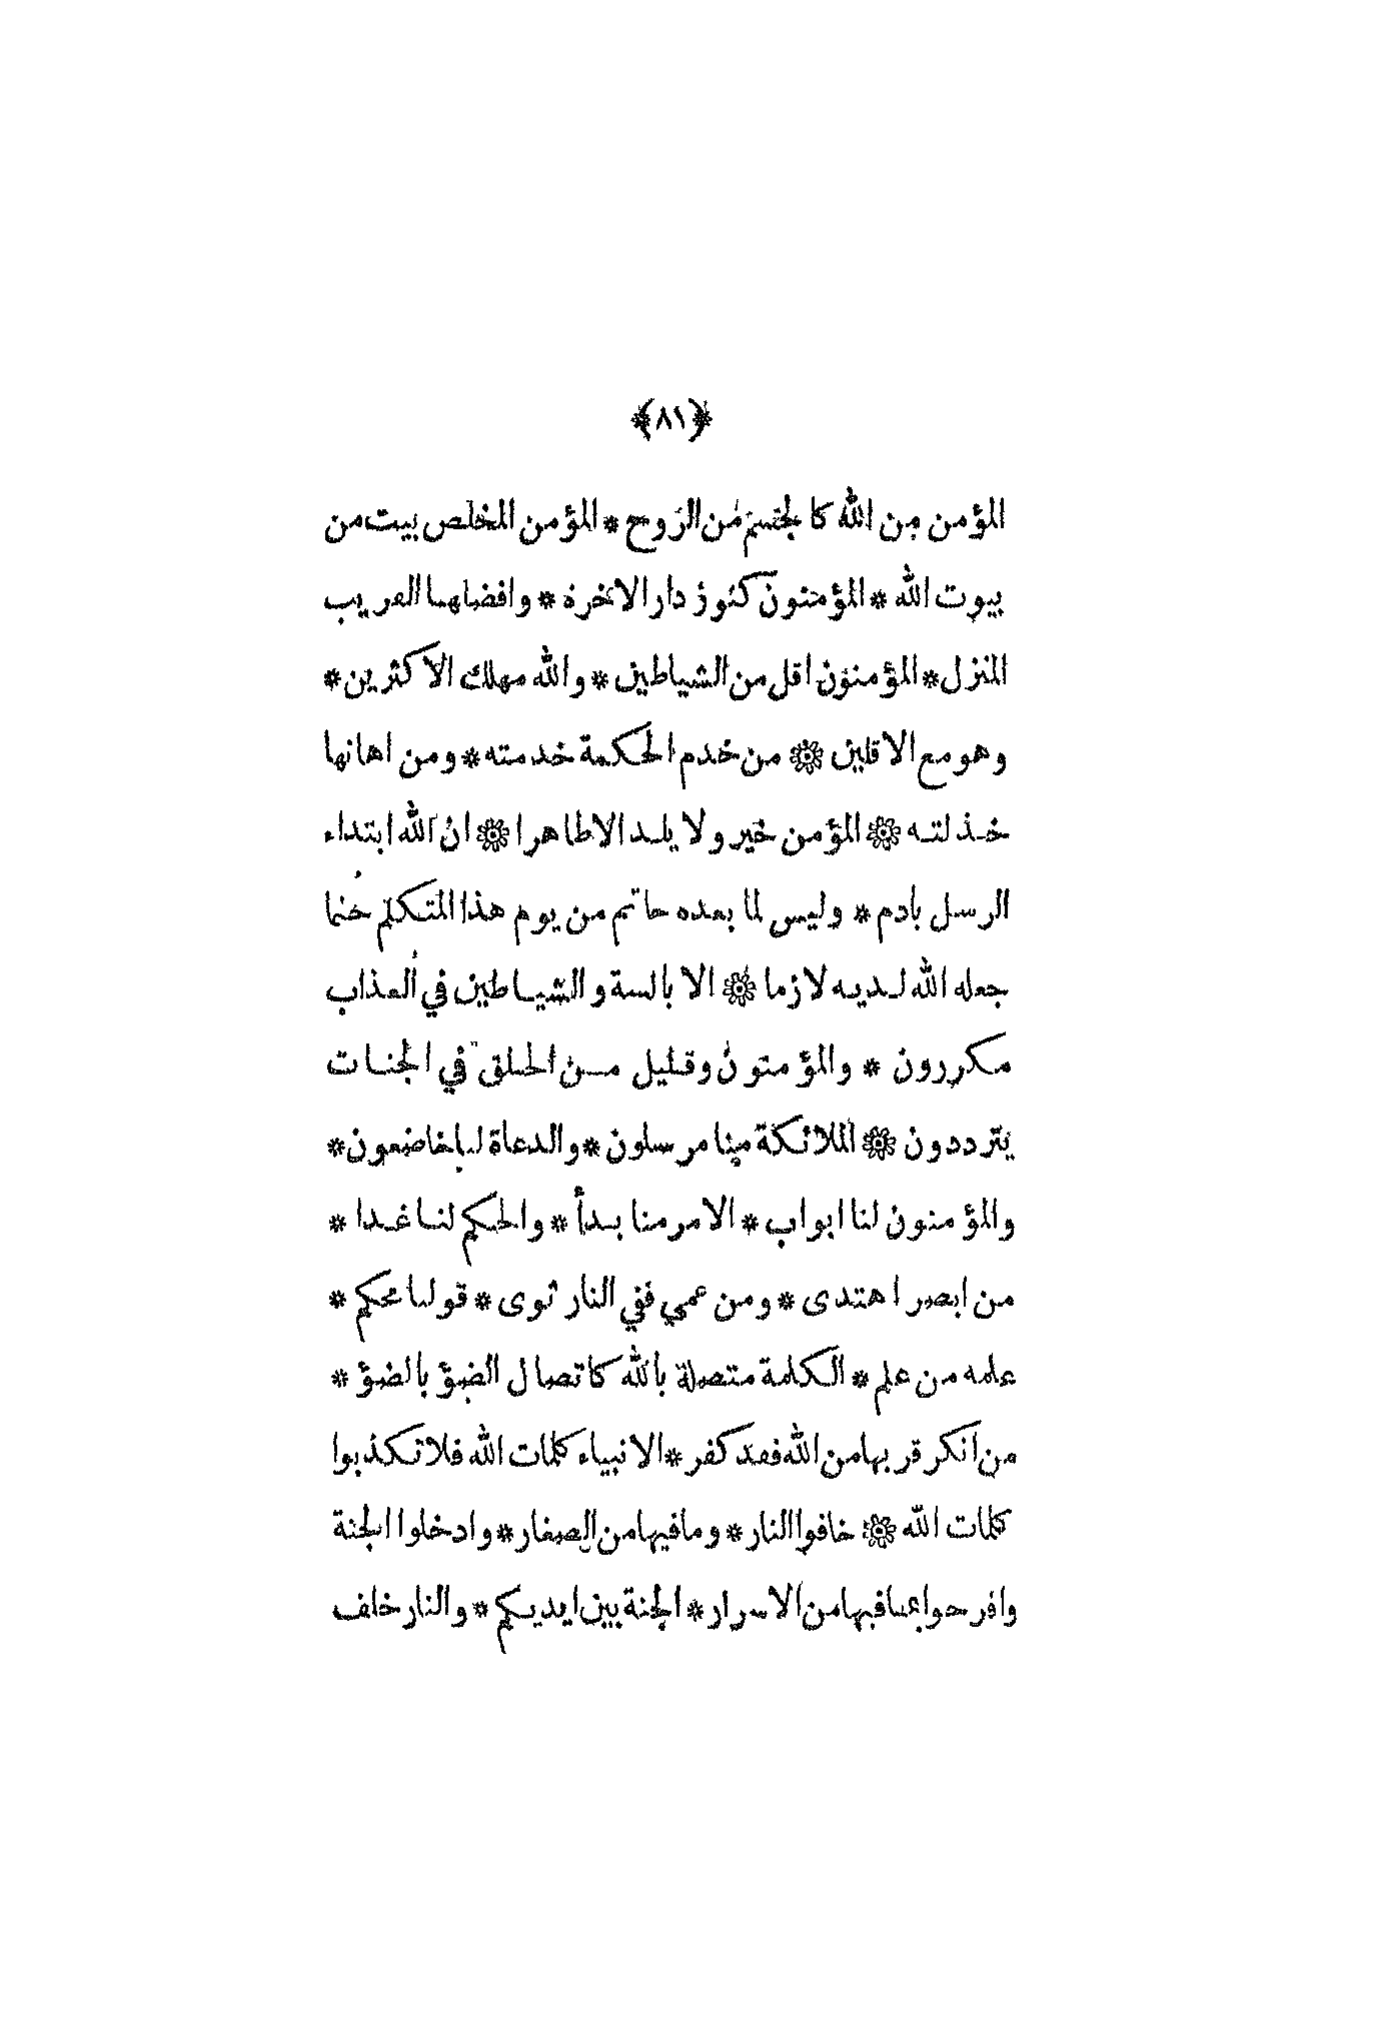 ﴿٨١﴾
المؤمن من الله كالجسم من الروح * المؤمن المخلص بيت من
بيوت الله * المؤمنون كنوز دار الاخرة * وافضلهما الغريب
المنزل * المؤمنون اقل من الشياطين * والله مهلك الاكثرين *
وهو مع الاقلين ۞ من خدم الحكمة خدمته * ومن اهانها
خذلته ۞ المؤمن خير ولا يلد الا طاهرا ۞ ان الله ابتداء
الرسل بادم * وليس لما بعده خاتم من يوم هذا المتكلم ختما
جعله الله لديه لازما ۞ الابالسة والشياطين في العذاب
مكررون * والمؤمنون وقليل من الخلق في الجنات
يترددون ۞ الملائكة منا مرسلون * والدعاة لنا خاضعون *
والمؤمنون لنا ابواب * الامر منا بدأ * والحكم لنا غدا *
من ابصر اهتدى * ومن عمي ففي النار ثوى * قولنا محكم *
علمه من علم * الكلمة متصلة بالله كاتصال الضؤ بالضؤ *
من انكر قربها من الله فقد كفر * الانبياء كلمات الله فلا تكذبوا
كلمات الله ۞ خافوا النار * وما فيها من الصغار * وادخلوا الجنة
وافرحوا بما فيها من الاسرار * الجنة بين ايديكم * والنار خلف